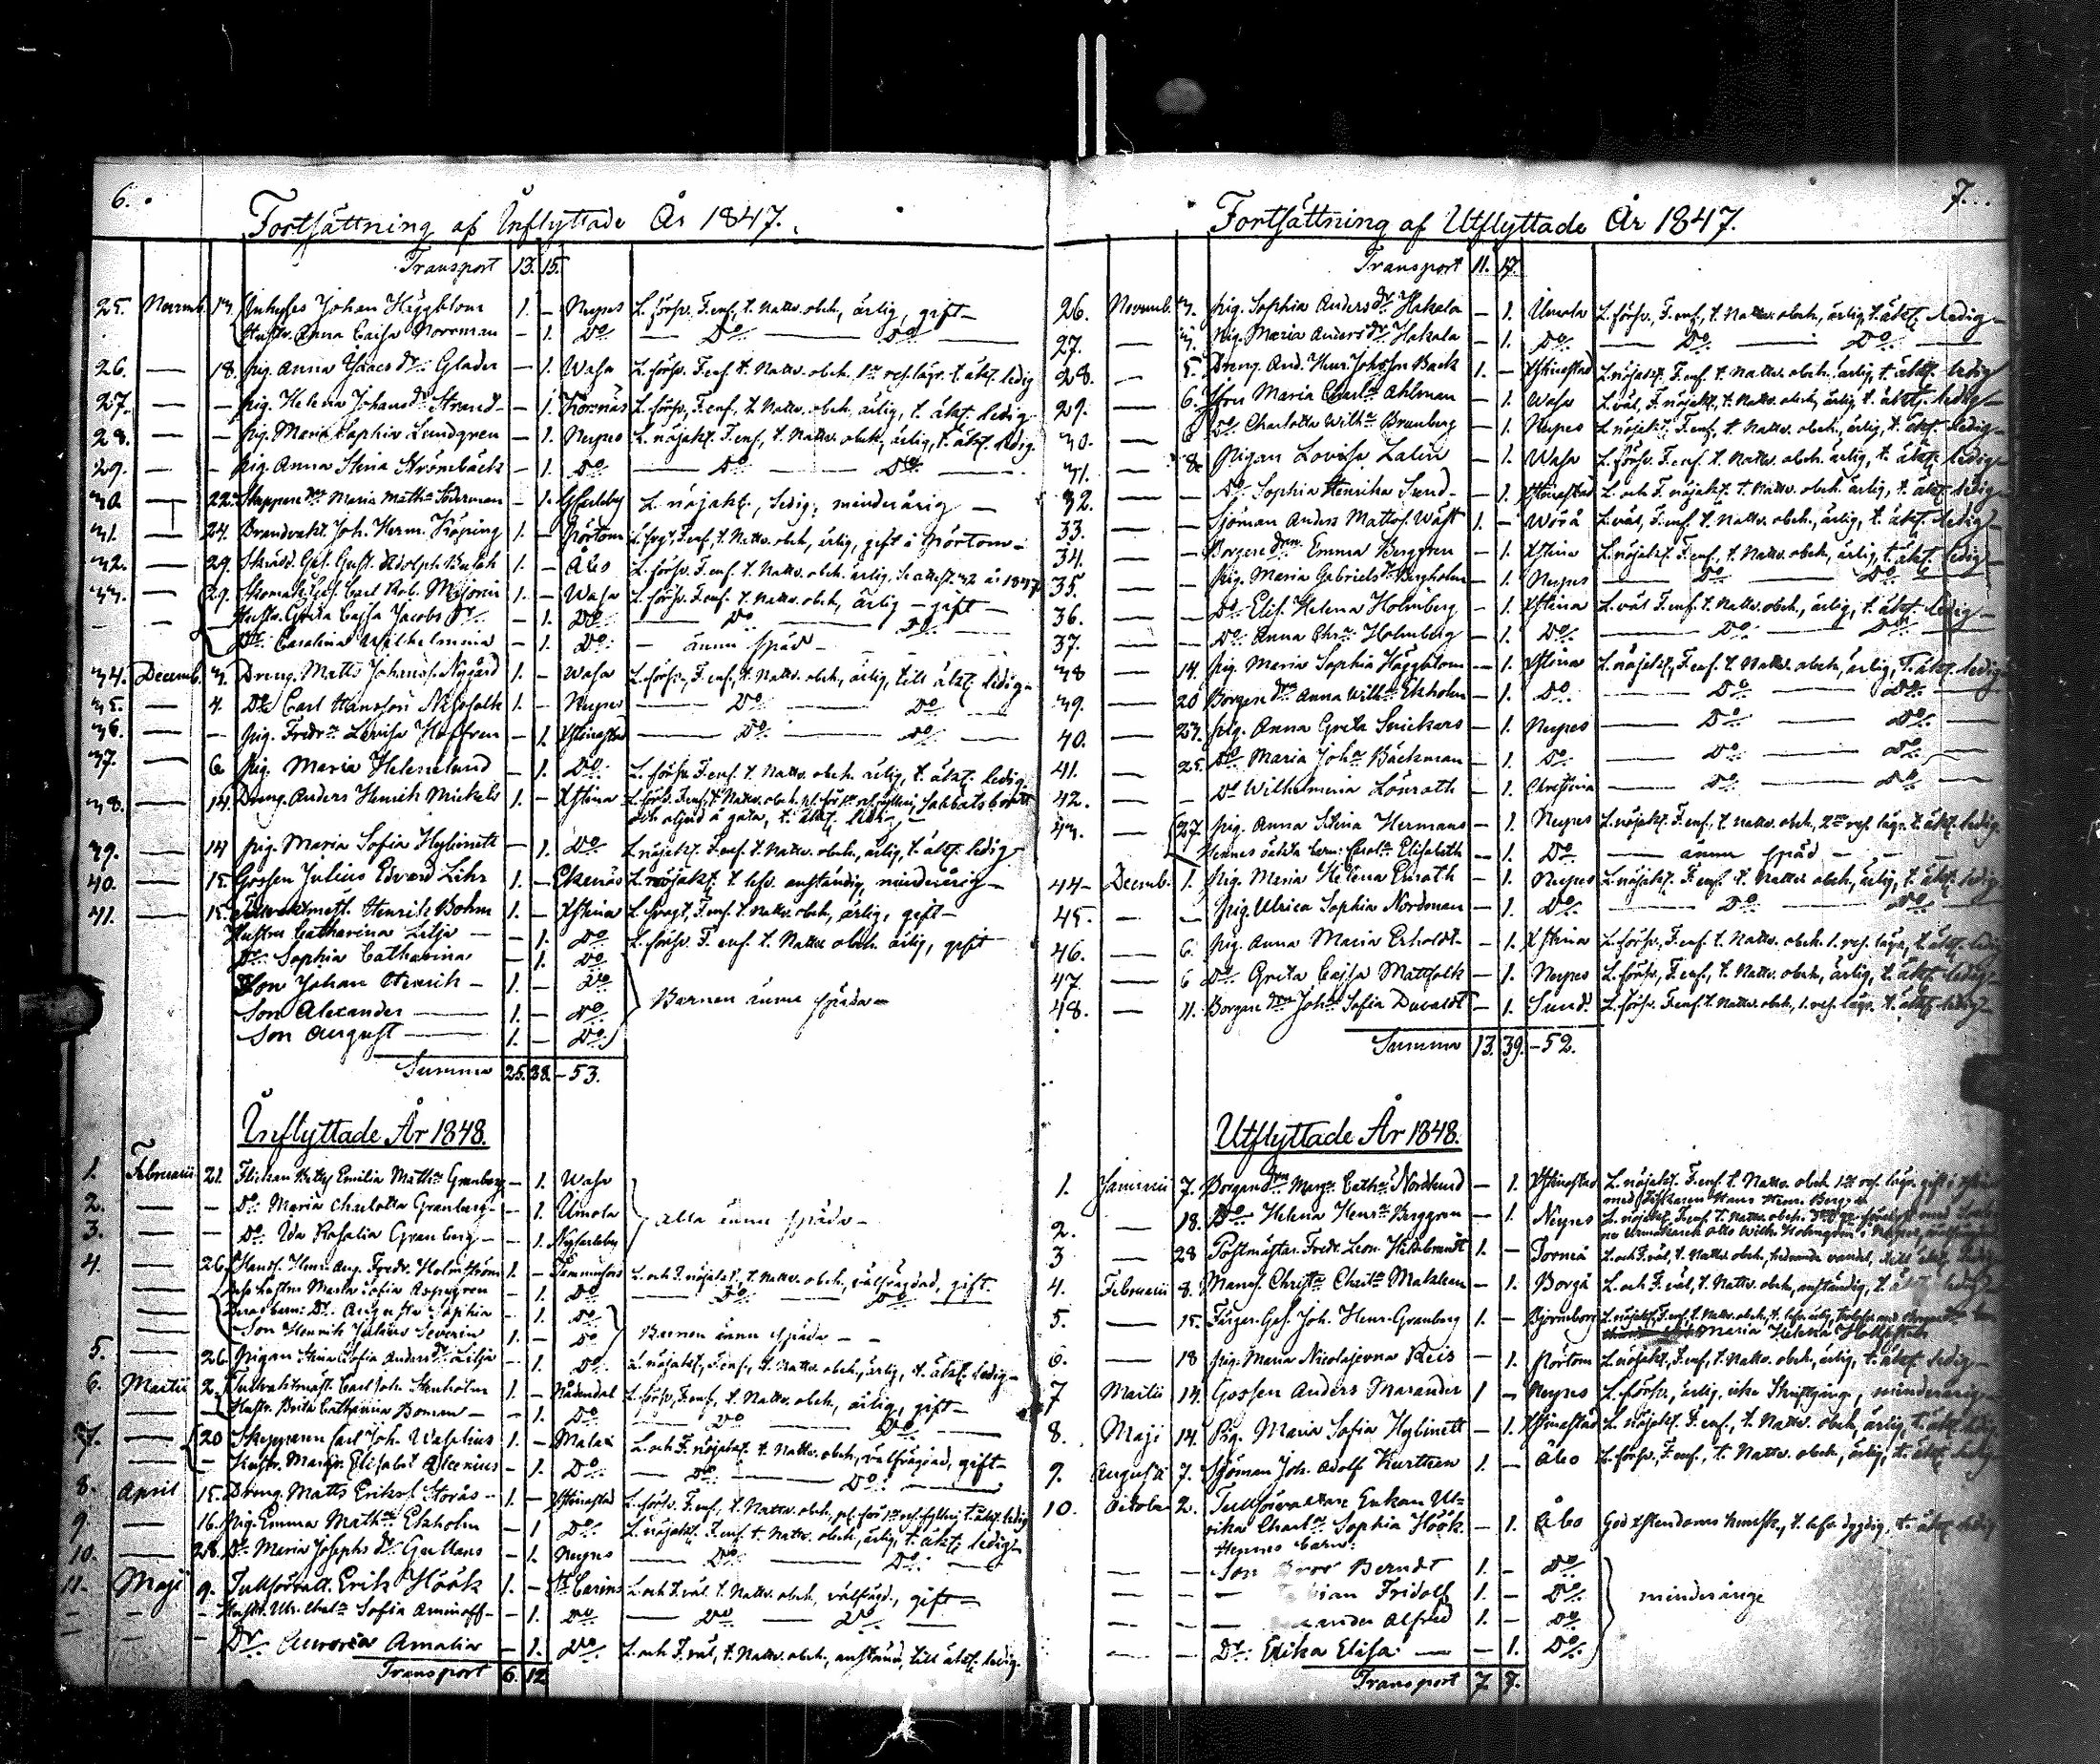 6.
Fortsättning af Inflyttade År 1847.
Transport 13. 15.
25. Novemb. 13. Inhyses Johan Häggblom 1. – Nerpes L. försv. F. enf. t. Nattv. obeh., ärlig, gift –
Hustr. Anna Caisa Norrman – 1. Do Do Do
26. — 18. Pig. Anna Isaacs dr. Glader – 1. Wasa L. försv. F. enf. t. Nattv. obeh. 1sta res. lägr. t. äkt. ledig
27. — – Pig. Helena Johansdr Strand – 1. Korsnäs L. försv. F. enf., t. Nattv. obeh., ärlig, t. äkt. ledig
28. — – Pig. Maria Sophia Lundgren – 1. Nerpes L. nöjakt. F. enf., t. Nattv. obeh., ärlig, t. äkt. ledig.
29. — – Pig. Anna Stina Strömbäck – 1. Do Do Do
30. — 22. Skeppare dr Maria Math:a Söderman – 1. GCarleby L. nöjakt., ledig, minderårig –
31. — 24. Brandvakt. Joh. Herm. Köpring 1. – Pörtom L. svgt, F. enf., t. Nattv. obeh., ärlig, gift i Pörtom –
32. — 29. Skrädd. Ges. Gust. Adolph Busch 1. – Åbo L. försv. F. enf. t. Nattv. obeh. ärlig, Se attest 32 år 1847
33. — 29. Skomak. Ges. Carl Rob. 1. – Wasa L. försv. F. enf. t. Nattv. obeh, ärlig – gift –
Hustr. Greta Cajsa Jacobs dr. – 1. Do Do Do
Dr. Carolina Wilhelmina – 1. Do. – ännu späd –
34. Decemb. 3. Dreng. Matts Johanss. Nygård 1. – Wasa L. försv., F. enf., t. Nattv. obeh., ärlig, till äkt. ledig –
35. — 4. Do Carl Hansson Nissfolk 1. – Nerpes Do Do
36. — – Pig. Fredr:a Lovisa Hoffren – 1. Xstinestad Do Do
37. — 6 Pig. Maria Helenelund – 1. Do L. försv. F. enf. t. Nattv. obeh. ärlig, t. äkt. ledig
38. — 14. Dreng. Anders Henrik Mickels 1. – Xstina L. försv. F. enf. t. Nattv. obeh. pl. för 1sta res. fylleri, Sabbatsbrott
och oljud å gata, t. äkt. ledig –
39. — 14 Pig. Maria Sofia Heybinett – 1. Do L. nöjakt. F. enf. t. Nattv. obeh., ärlig, t. äkt. ledig
40. — 15. Gossen Julius Edvard Lihr 1. – Ekenäs L. nöjakt. t. lefv. anständig, minderårig –
41. — 15. Henrik Bohm 1. – Xstina L. svagt, F. enf. t. Nattv. obeh., ärlig, gift –
Hustru Catharina Lilja – – 1. Do L. försv. F. enf. t. Nattv. obeh. ärlig, gift
Dr. Sophia Catharina – 1. Do
Son Johan Henrik – 1. – Do Barnen ännu späda –
Son Alexander 1. – Do
Son August 1. – Do
Summa 25. 28. – 53.
Inflyttade År 1848.
1. Februarii 21. Flickan Betty Emilia Math:a Granberg – 1. Wasa
2. — – Do Maria Charlotta Granberg – 1. Umola Alla ännu späda –
3. — – Do Ida Rosalia Granberg – 1. NyCarleby
4. — 26. Handl. Henr. Aug. Fredr. Holmström 1. – Tammerfors L. och F. nöjakt., t. Nattv. obeh., välfrägdad, gift
Dess hustru Maria Sofia Aspegren – 1. Do Do Do
Deras barn: Dr. Augusta Sophia – 1. Do
Son Henrik Julius Severin 1. – Do Barnen ännu späda –
5. — 26. Pigan Stina Sofia Anders dr. Lilja – 1. Do. L. nöjakt., F. enf., t. Nattv. obeh., ärlig, t. äkt. ledig –
6. Martii 2. Carl Joh. Stenholm 1. – Nådendal L. försv. F. enf., t. Nattv. obeh., ärlig, gift –
Hustr. Brita Catharina Boman – – 1. Do Do Do
7. — 20 Skepparen Carl Joh. Waselius 1. – Malax L. och F. nöjakt. t. Nattv. obeh., välfrägdad, gift –
– Hustr. Margr. Elisabet Alcenius – 1. Do Do Do
8. April 15. Dreng. Matts Eriks. Storås – 1. – Xstinestad L. försv. F. enf., t. Nattv. obeh., pl. för 1sta res. fylleri, t. äkt. ledig
9. — 16. Pig. Emma Math:a Ekholm – 1 Do. L. nöjakt. F. enf. t. Nattv. obeh., ärlig, t. äkt. ledig –
10. — 28. Do Maria Josephs dr. Gullans – 1. Nerpes Do Do
11. Maji 9. Tullförvalt. Erik Höök 1. – St Carins L. och F. väl. t. Nattv. obeh., välfrägd., gift –
Hustr. Ulr. Chal:a Sofia Aminoff – – 1. Do Do Do
Dr. Aurora Amalia – 1. Do L. och F. väl, t. Nattv. obeh., anständ, till äkt. ledig.
Transport 6. 12
7.
Fortsättning af Utflyttade År 1847.
Transport 11. 17.
26. Novemb. 3. Pig. Sophia Anders dr. Hakala – 1. Umola L. försv., F. enf., t. Nattv. obeh., ärlig, t. äkt. ledig –
27. — 3. Pig. Maria Anders dr. Hakala – 1. Do. Do Do
28. — 5. Dreng. And. Henr. Johsson Back 1. – Xstinestad L. nöjakt. F. enf. t. Nattv. obeh. ärlig, t. äkt. ledig
29. — 6. Jfru Maria Charl:a Ahlman – 1. Wasa L. väl, F. nöjakt., t. Nattv. obeh., ärlig, t. äkt. ledig –
30. — 6 Do. Charlotta Wilh:a Brunberg – 1. Nerpes L. nöjakt., F. enf., t. Nattv. obeh., ärlig, t. äkt. ledig –
31. — 8. Pigan Lovisa Lalin – 1. Wasa L. försv. F. enf. t. Nattv. obeh. ärlig, t. äkt. ledig –
32. — – Do. Sophia Henrika Sund – – 1. Xstinestad L. och F. nöjakt. t. Nattv. obeh. ärlig, t. äkt. ledig –
33. — – Sjöman Anders Mattss. Wäst 1. – Wörå L. väl, F. enf. t. Nattv. obeh., ärlig, t. äkt. ledig –
34. — – Borgare dr. Emma Berggren – 1. Xstina L. nöjakt. F. enf., t. Nattv. obeh., ärlig, t. äkt. ledig –
35. — Pig. Maria Gabriels dr. Bergholm – 1. Nerpes Do Do
36. — – Do. Elis. Helena Holmberg – 1. Xstina L. väl F. enf. t. Nattv. obeh., ärlig, t. äkt. ledig –
37. — – Do. Anna Chr:a Holmberg – 1. Do. Do Do
38 — 14. Pig. Maria Sophia Häggblom – 1. Xstina L. nöjakt., F. enf. t. Nattv. obeh., ärlig, t. äkt. ledig
39. — 20 Borgare dr. Anna Wilh:a Ekholm – 1. Do. Do Do
40. — 23. Pig. Anna Greta Snickars – 1. Nerpes Do Do
41. — 25. Do Maria Joh:a Bäckman – 1. Do. Do Do
42. — – Do Wilhelmina Lönroth – 1. Christina Do Do
43. — 27. Pig. Anna Stina Hermans – 1. Nerpes L. nöjakt. F. enf., t. nattv. obeh., 2dra res. lägr. t. äkt. ledig.
Hennes oäkta barn: Carol:a Elisabeth – 1. Do ännu späd –
44 – Decemb. 1. Pig. Maria Helena Enroth – 1. Nerpes L. nöjakt. F. enf. t. Nattv. obeh., ärlig, t. äkt. ledig
45. – – Pig. Ulrica Sophia Nordman – 1. Do. Do Do
46. — 6. Pig. Anna Maria Erholdt – – 1. Xstina L. försv., F. enf., t. Nattv. obeh. 1. res. lägr., t. äkt. ledig
47. — 6 Do. Greta Cajsa Mattfolk – 1. Nerpes L. försv., F. enf., t. Nattv. obeh., ärlig, t. äkt. ledig –
48. — 11. Borgare dr. Joh:a Sofia Duvaldt – 1. Sund. L. försv. F. enf. t. Nattv. obeh, 1. res. lägr. t. äkt. ledig –
Summa 13. 39. – 52.
Utflyttade År 1848.
1. Januarii 7. Borgare dr. Marg:a Cath:a Nordlund – 1. Xstinestad L. nöjakt. F. enf. t. Nattv. obeh 1sta res. lägr. gift i
med Hans Henr. Berg
2. — 18. Do Helena Henr:a Berggren – 1. Nerpes L. nöjakt. F. enf. t. Nattv. obeh.
Otto Wilh. Holmström i Nerpes,
3 — 28 Postmästar. Fredr. Leon. Hildebrandt 1. – Torneå L. och F. väl, t. Nattv. obeh, hedrande vandel, till äkt. ledig
4. Februarii 3. Mams. Christ:a Charl:a Malsleen – 1. Borgå L. och F. väl, t. Nattv. obeh., anständig, t. äkt. ledig
5. — 15. Färger. Ges. Joh. Henr. Granberg 1. – Björneborg L. nöjakt., F. enf., t. Nattv. obeh., t. lefv. ärlig,
Maria Helena
6. — 18 Pig. Maria Nicolajevna Reis – 1. Pörtom L. nöjakt., F. enf., t. Nattv. obeh., ärlig, t. äkt. ledig –
7 Martii 14. Gossen Anders Marander 1 – Nerpes L. försv., ärlig, icke Skriftgång., minderårig
8. Maji 14. Pig. Maria Sofia Heybinett – 1. Xstinestad L. nöjakt. F. enf., t. Nattv. obeh, ärlig, t. äkt. ledig
9. Augusti 7. Sjöman Joh. Adolf Kurtzen 1. – Åbo L. försv., F. enf., t. Nattv. obeh., ärlig, t. äkt. ledig
10. October 2. Tullförvaltare Enkan Ul=
rika Charl:a Sophia Höök – 1. Åbo God Xstendoms kunsk., t. lefv. dygdig, t. äkt. ledig
Hennes barn:
— – Son Berndt 1. – Do
— – – Fridolf 1. – Do minderårige
— – – Alfred 1. – Do
— – Dr. Erika Elisa – 1. Do
Transport 7 7.